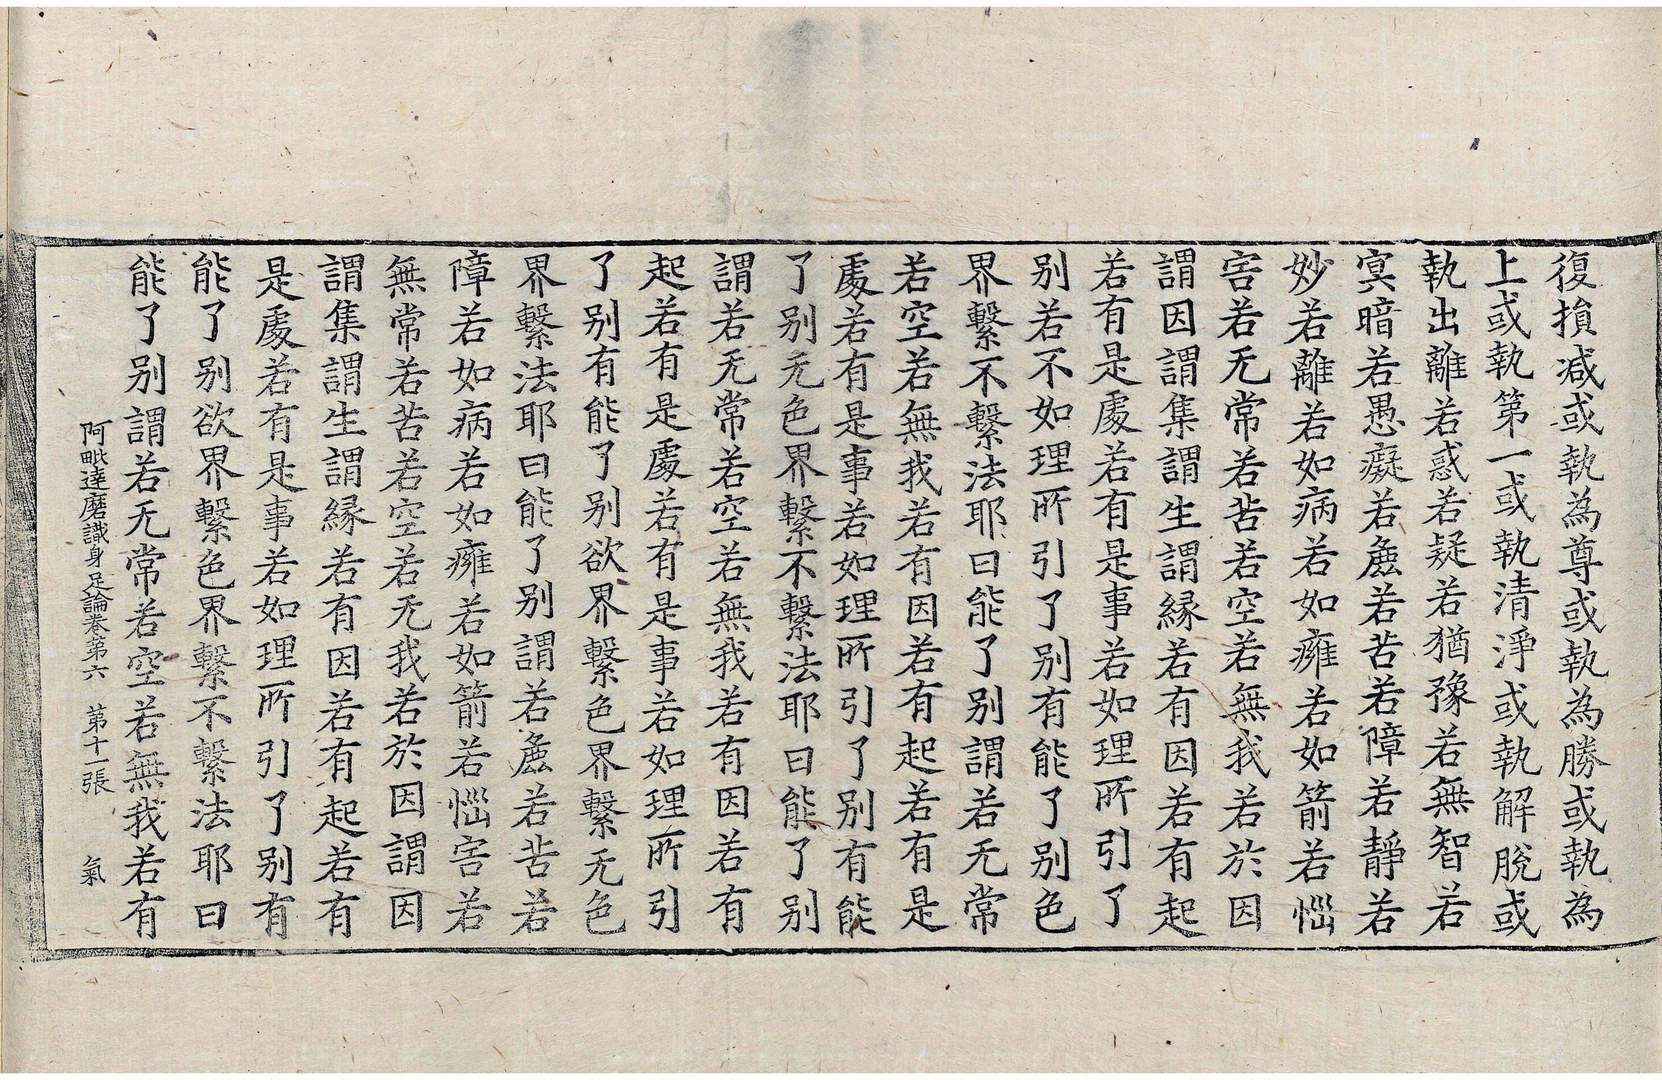 復損减或執為尊或執為勝或執為
上或執第一或執清淨或執解脫或
執出離若惑若疑若猶豫若無智若
㝠暗若愚癡若麁若苦若障若靜若
妙若離若如病若如癰若如箭若惱
害若无常若苦若空若無我若於因
謂因謂集謂生謂縁若有因若有起
若有是處若有是事若如理所引了
别若不如理所引了别有能了别色
界繫不繫法耶曰能了别謂若无常
若空若無我若有因若有起若有是
處若有是事若如理所引了别有能
了别无色界繫不繫法耶曰能了别
謂若无常若空若無我若有因若有
起若有是處若有是事若如理所引
了别有能了别欲界繫色界繫无色
界繫法耶曰能了别謂若麁若苦若
障若如病若如癰若如箭若惱害若
無常若苦若空若无我若於因謂因
謂集謂生謂縁若有因若有起若有
是處若有是事若如理所引了别有
能了别欲界繫色界繫不繫法耶曰
能了别謂若无常若空若無我若有
阿毗達磨識身足論卷第六 第十一張 氣